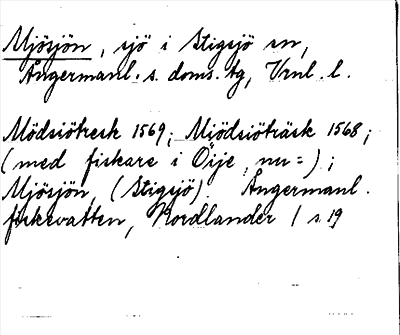 Mjösjön, sjö i Stigsjö sn,
Ångermanl. s. doms. tg, Vrnl. l.
Mödsiötresk 1569; Miödsiöträsk 1568;
(med fiskare i Öije, nu = );
Mjösjön, (Stigsjö). Ångermanl.
fiskevatten, Nordlander 1 s. 19